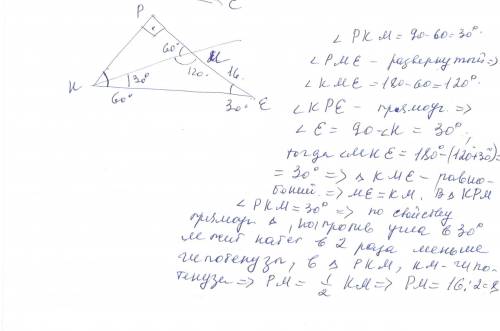 C
P
60° M
120.
16.
K 30°
60° 30° E
∠ PKM = 90-60=30°
∠ PME - развернутый =>
∠ KME = 180-60=120°
∠ KPE - прямоуг. =>
∠ E = 90-∠K = 30°,
тогда ∠MKE = 180°-(120+30)=
= 30° => △ KME - равно-
=> ME=KM. В △ KPM
∠ PKM = 30° => по свойству
прямоуг △, напротив угла в 30°
лежит катет в 2 раза меньше
гипотенузы, в △ PKM, KM - гипо-
тенуза => PM = 1/2 KM => PM = 16:2=8